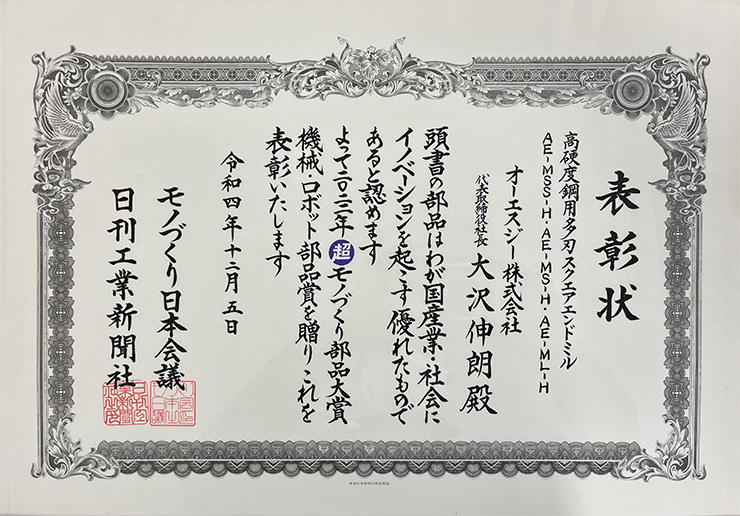 表彰状
高硬度鋼用多刃スクエアエンドミル
AE-MSS-H・AE-MS-H・AE-ML-H
オーエスジー株式会社
代表取締役社長 大沢伸朗殿
頭書の部品はわが国産業・社会に
イノベーションを起こす優れたもので
あると認めます
よって二〇二二年 超 モノづくり部品大賞
機械・ロボット部品賞を贈りこれを
表彰いたします
令和四年十二月五日
モノづくり日本会議
日刊工業新聞社